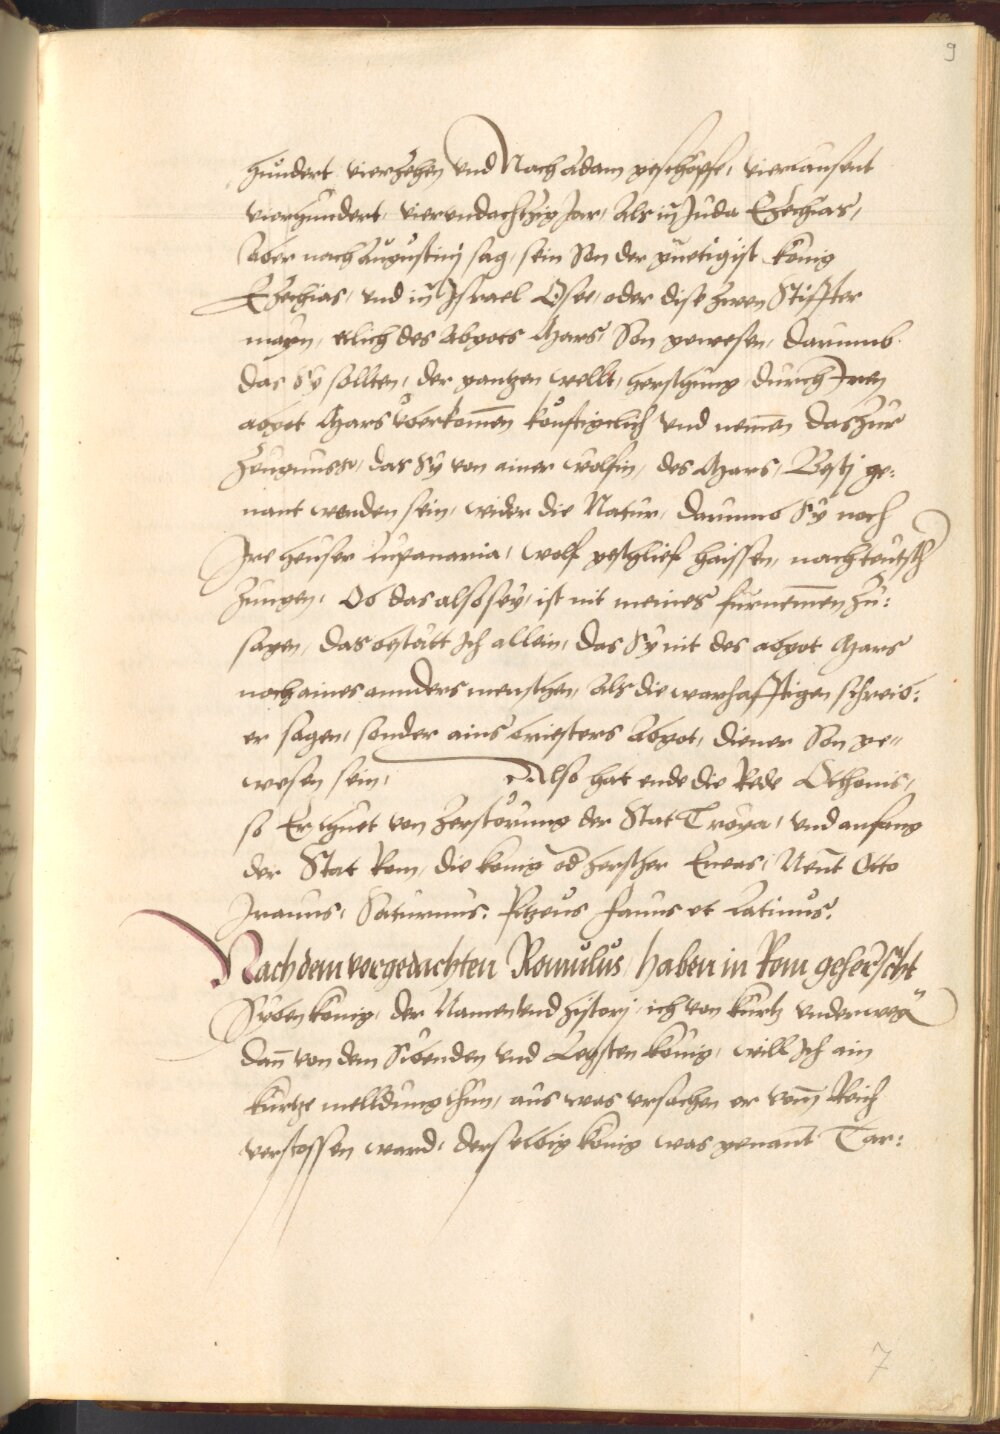 9
hundert vierzehen und Nach Adam geschöpffe, viertausent
vierhundert, vierundachtzig Jar, Als in Juda Ezechias,
Aber nach Augustinj sag, sein Son der guetigist König
Ezechias, und in Israel Osee, oder dise zwen Stiffter
mayn, Elich des Abgots Mars, Son gewesen, darumb
das Sy sollten, der gantzen wellt, hersthung durch Iren
abgot Mars uberkomen könftigclich und nemen das zur
Zeugnuss, das Sy von ainer Wolfin, des Mars, Bestj ge:
nant worden sein, wider die Natur, darumb Sy noch
Ire heuser Lupanaria, wolf geschlief haissen, nach teutsch
Zungen, Ob das also sey, ist nit meines furnemen zu:
sagen, das bestätt Ich allein, das Sy nit des abgot Mars
noch aines annders menschen, Als die warhafftigen schreib:
er sagen, sonder ains briesters Abgot, diener Son ge„
wesen sein, Also hat ende die Rede Othonis,
so Er thuet von zerstörung der Stat Troya, und anfang
der Stat Rom, die könig od herscher Eneas, Nent Otto
Iranus, Saturnus, Piceus Faunus et Latinus.
Nach dem vorgedachten Romulus, haben in Rom geherscht
Syben könig, der Namen und history, ich von kürtz underweg
dan von dem Sibenden und Letzsten könig, will Ich ain
kurtze melldung thun, aus was ursachen er vom Reich
verstossen ward, derselbig könig was genant Tar:
7